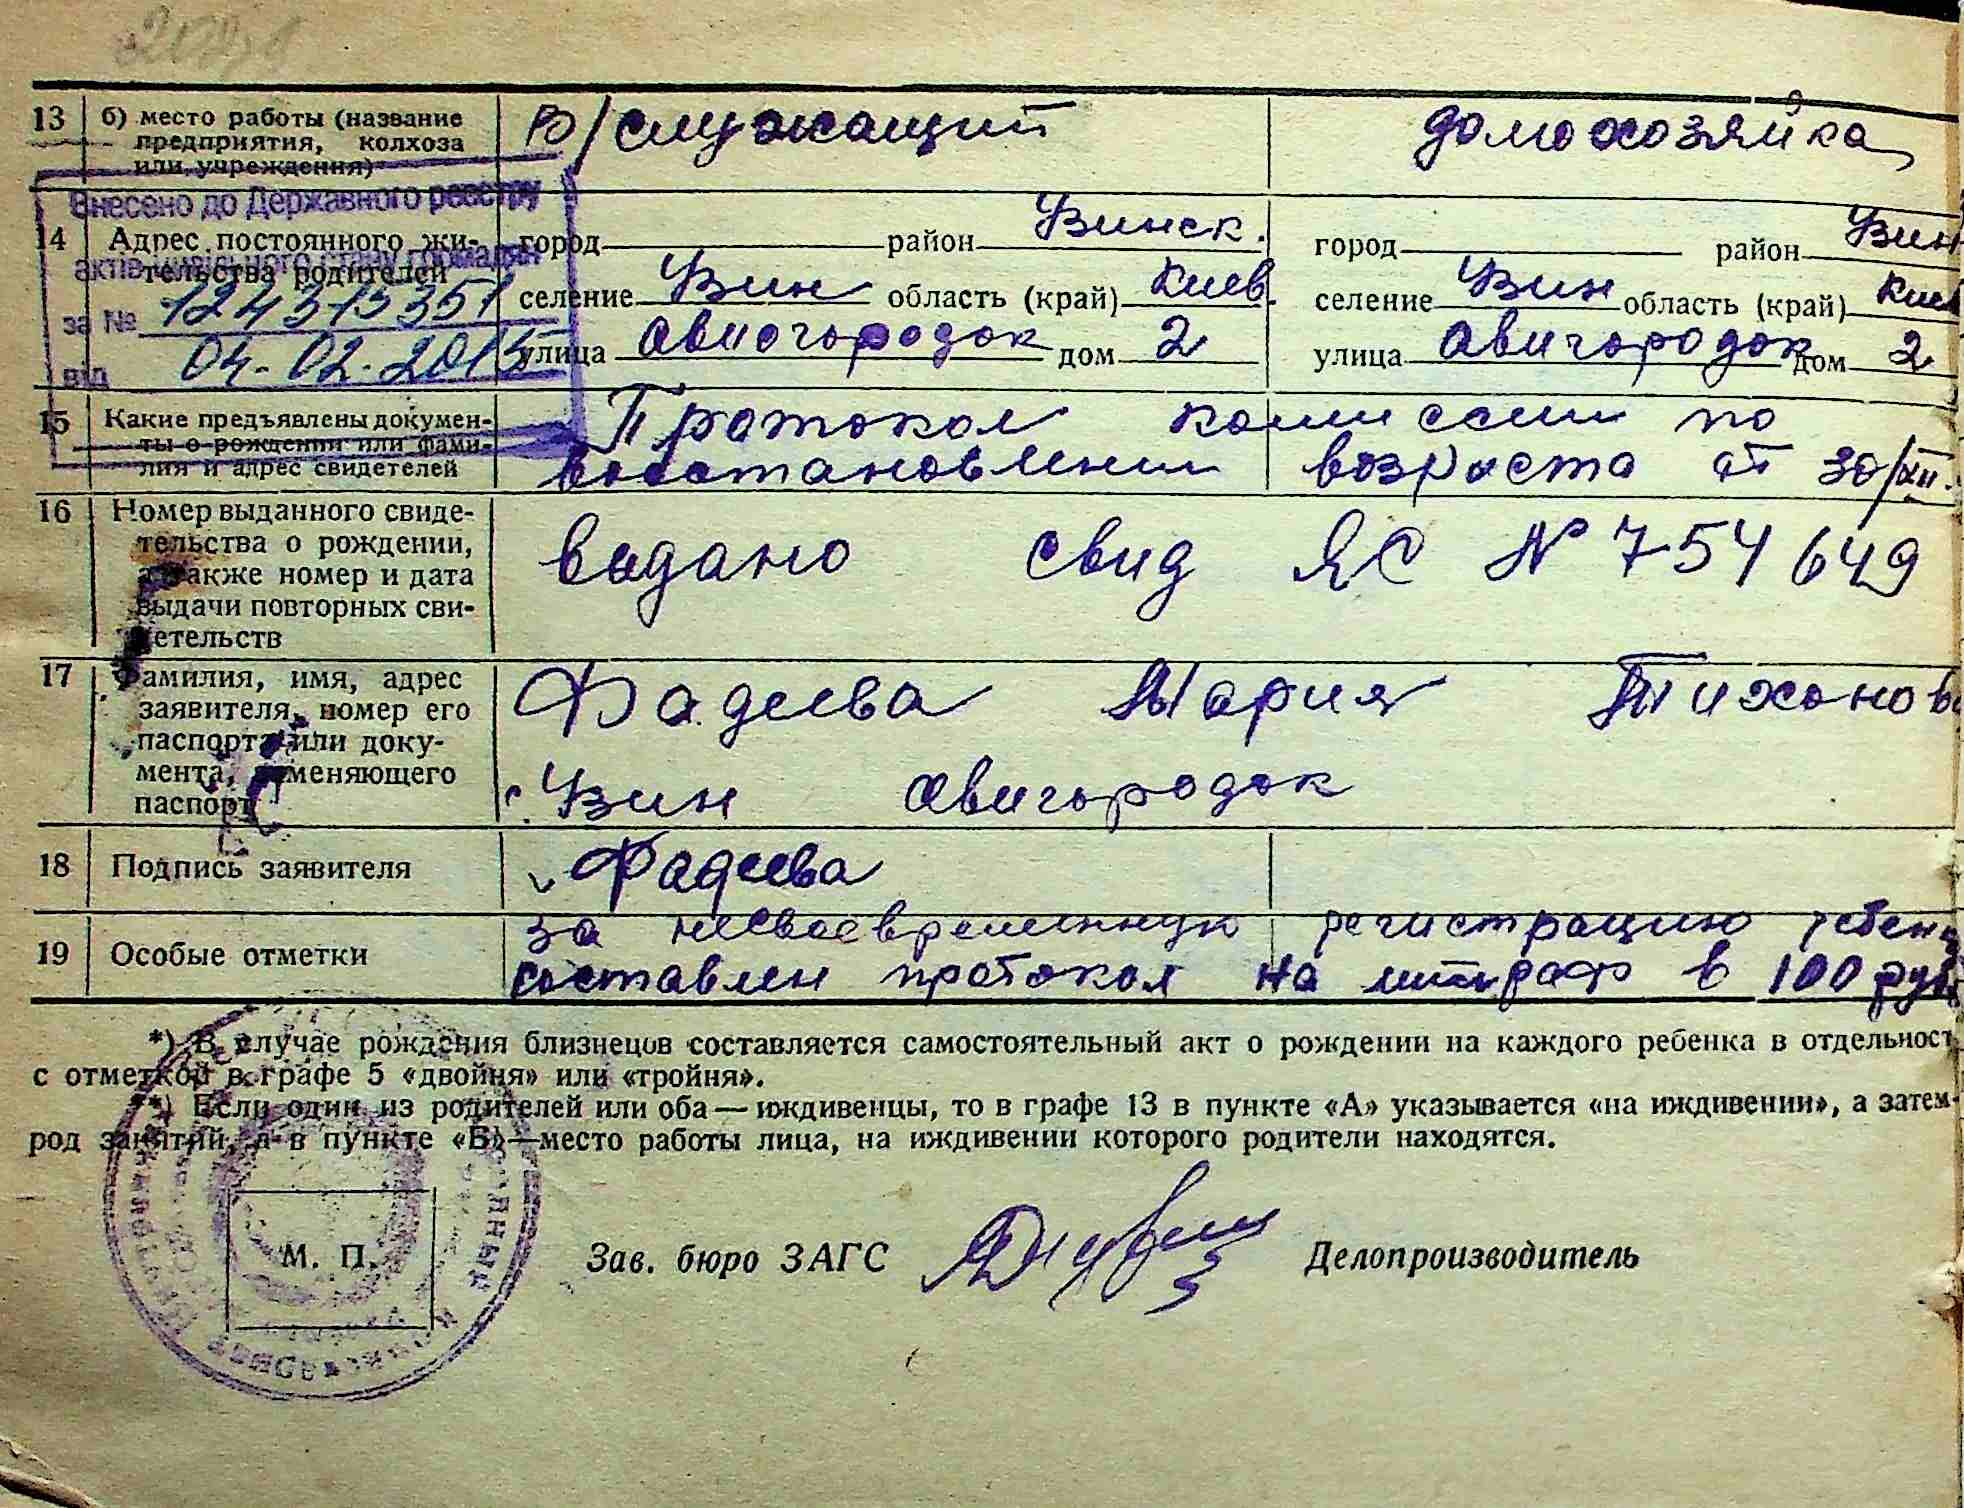 13 б) место работы (название предприятия, колхоза или учреждения)
в/служащий
домохозяйка
Внесено до Державного реєстру
актів цивільного стану громадян
за №
від 04.02.2015
14 Адрес постоянного жительства родителей
город район Узинск.
селение Узин область (край) Киев.
улица Авиогородок дом 2
город район Узин
селение Узин область (край) Киев
улица Авигородок дом 2
15 Какие предъявлены документы о рождении или фамилия и адрес свидетелей
Протокол комиссии по
восстановлении возраста от 30/XII.
16 Номер выданного свидетельства о рождении, а также номер и дата выдачи повторных свидетельств
видано свид ЯС № 754649
17 Фамилия, имя, адрес заявителя, номер его паспорта или документа, заменяющего паспорт
Фадеева Мария Тихонов
г. Узин Авигородок
18 Подпись заявителя
Фадеева
19 Особые отметки
за несвоевременную регистрацию ребен
составлен протокол на штраф в 100 руб
*) В случае рождения близнецов составляется самостоятельный акт о рождении на каждого ребенка в отдельност
с отметкой в графе 5 «двойня» или «тройня».
**) Если один из родителей или оба — иждивенцы, то в графе 13 в пункте «А» указывается «на иждивении», а затем
род занятий, а в пункте «Б» — место работы лица, на иждивении которого родители находятся.
М. П.
Зав. бюро ЗАГС
Делопроизводитель